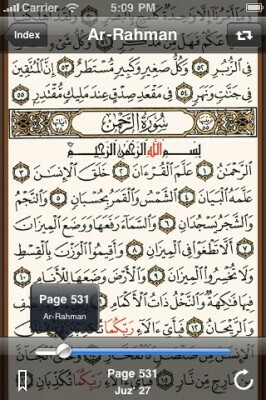 Carrier 5:09 PM
Index Ar-Rahman
وَمَآ أَمْرُنَآ إِلَّا وَٰحِدَةٌ
أَشْيَاعَكُمْ فَهَلْ مِن مُّدَّكِرٍ ٥١ وَكُلُّ شَىْءٍ
فِى ٱلزُّبُرِ ٥٢ وَكُلُّ صَغِيرٍ وَكَبِيرٍ مُّسْتَطَرٌ ٥٣ إِنَّ ٱلْمُتَّقِينَ
فِى جَنَّٰتٍ وَنَهَرٍ ٥٤ فِى مَقْعَدِ صِدْقٍ عِندَ مَلِيكٍ مُّقْتَدِرٍۭ ٥٥
سُورَةُ الرَّحْمَٰن
بِسْمِ ٱللَّهِ ٱلرَّحْمَٰنِ ٱلرَّحِيمِ
ٱلرَّحْمَٰنُ ١ عَلَّمَ ٱلْقُرْءَانَ ٢ خَلَقَ ٱلْإِنسَٰنَ ٣
عَلَّمَهُ ٱلْبَيَانَ ٤ ٱلشَّمْسُ وَٱلْقَمَرُ بِحُسْبَانٍ ٥ وَٱلنَّجْمُ
وَٱلشَّجَرُ يَسْجُدَانِ ٦ وَٱلسَّمَآءَ رَفَعَهَا وَوَضَعَ ٱلْمِيزَانَ
٧ أَلَّا تَطْغَوْا۟ فِى ٱلْمِيزَانِ ٨ وَأَقِيمُوا۟ ٱلْوَزْنَ بِٱلْقِسْطِ
وَلَا تُخْسِرُوا۟ ٱلْمِيزَانَ ٩ وَٱلْأَرْضَ وَضَعَهَا لِلْأَنَامِ ١٠
فِيهَا فَٰكِهَةٌ وَٱلنَّخْلُ ذَاتُ ٱلْأَكْمَامِ ١١
وَٱلرَّيْحَانُ ١٢ فَبِأَىِّ ءَالَآءِ رَبِّكُمَا
Page 531
Ar-Rahman
Page 531
Juz' 27